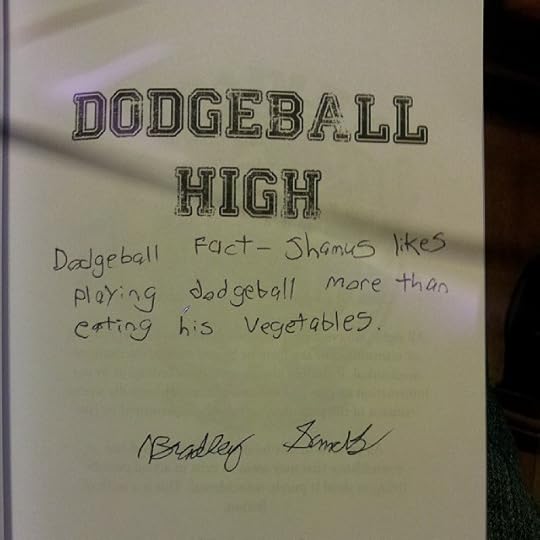 DODGEBALL
HIGH
Dodgeball Fact- Shamus likes
playing dodgeball more than
eating his vegetables.
Bradley Sands